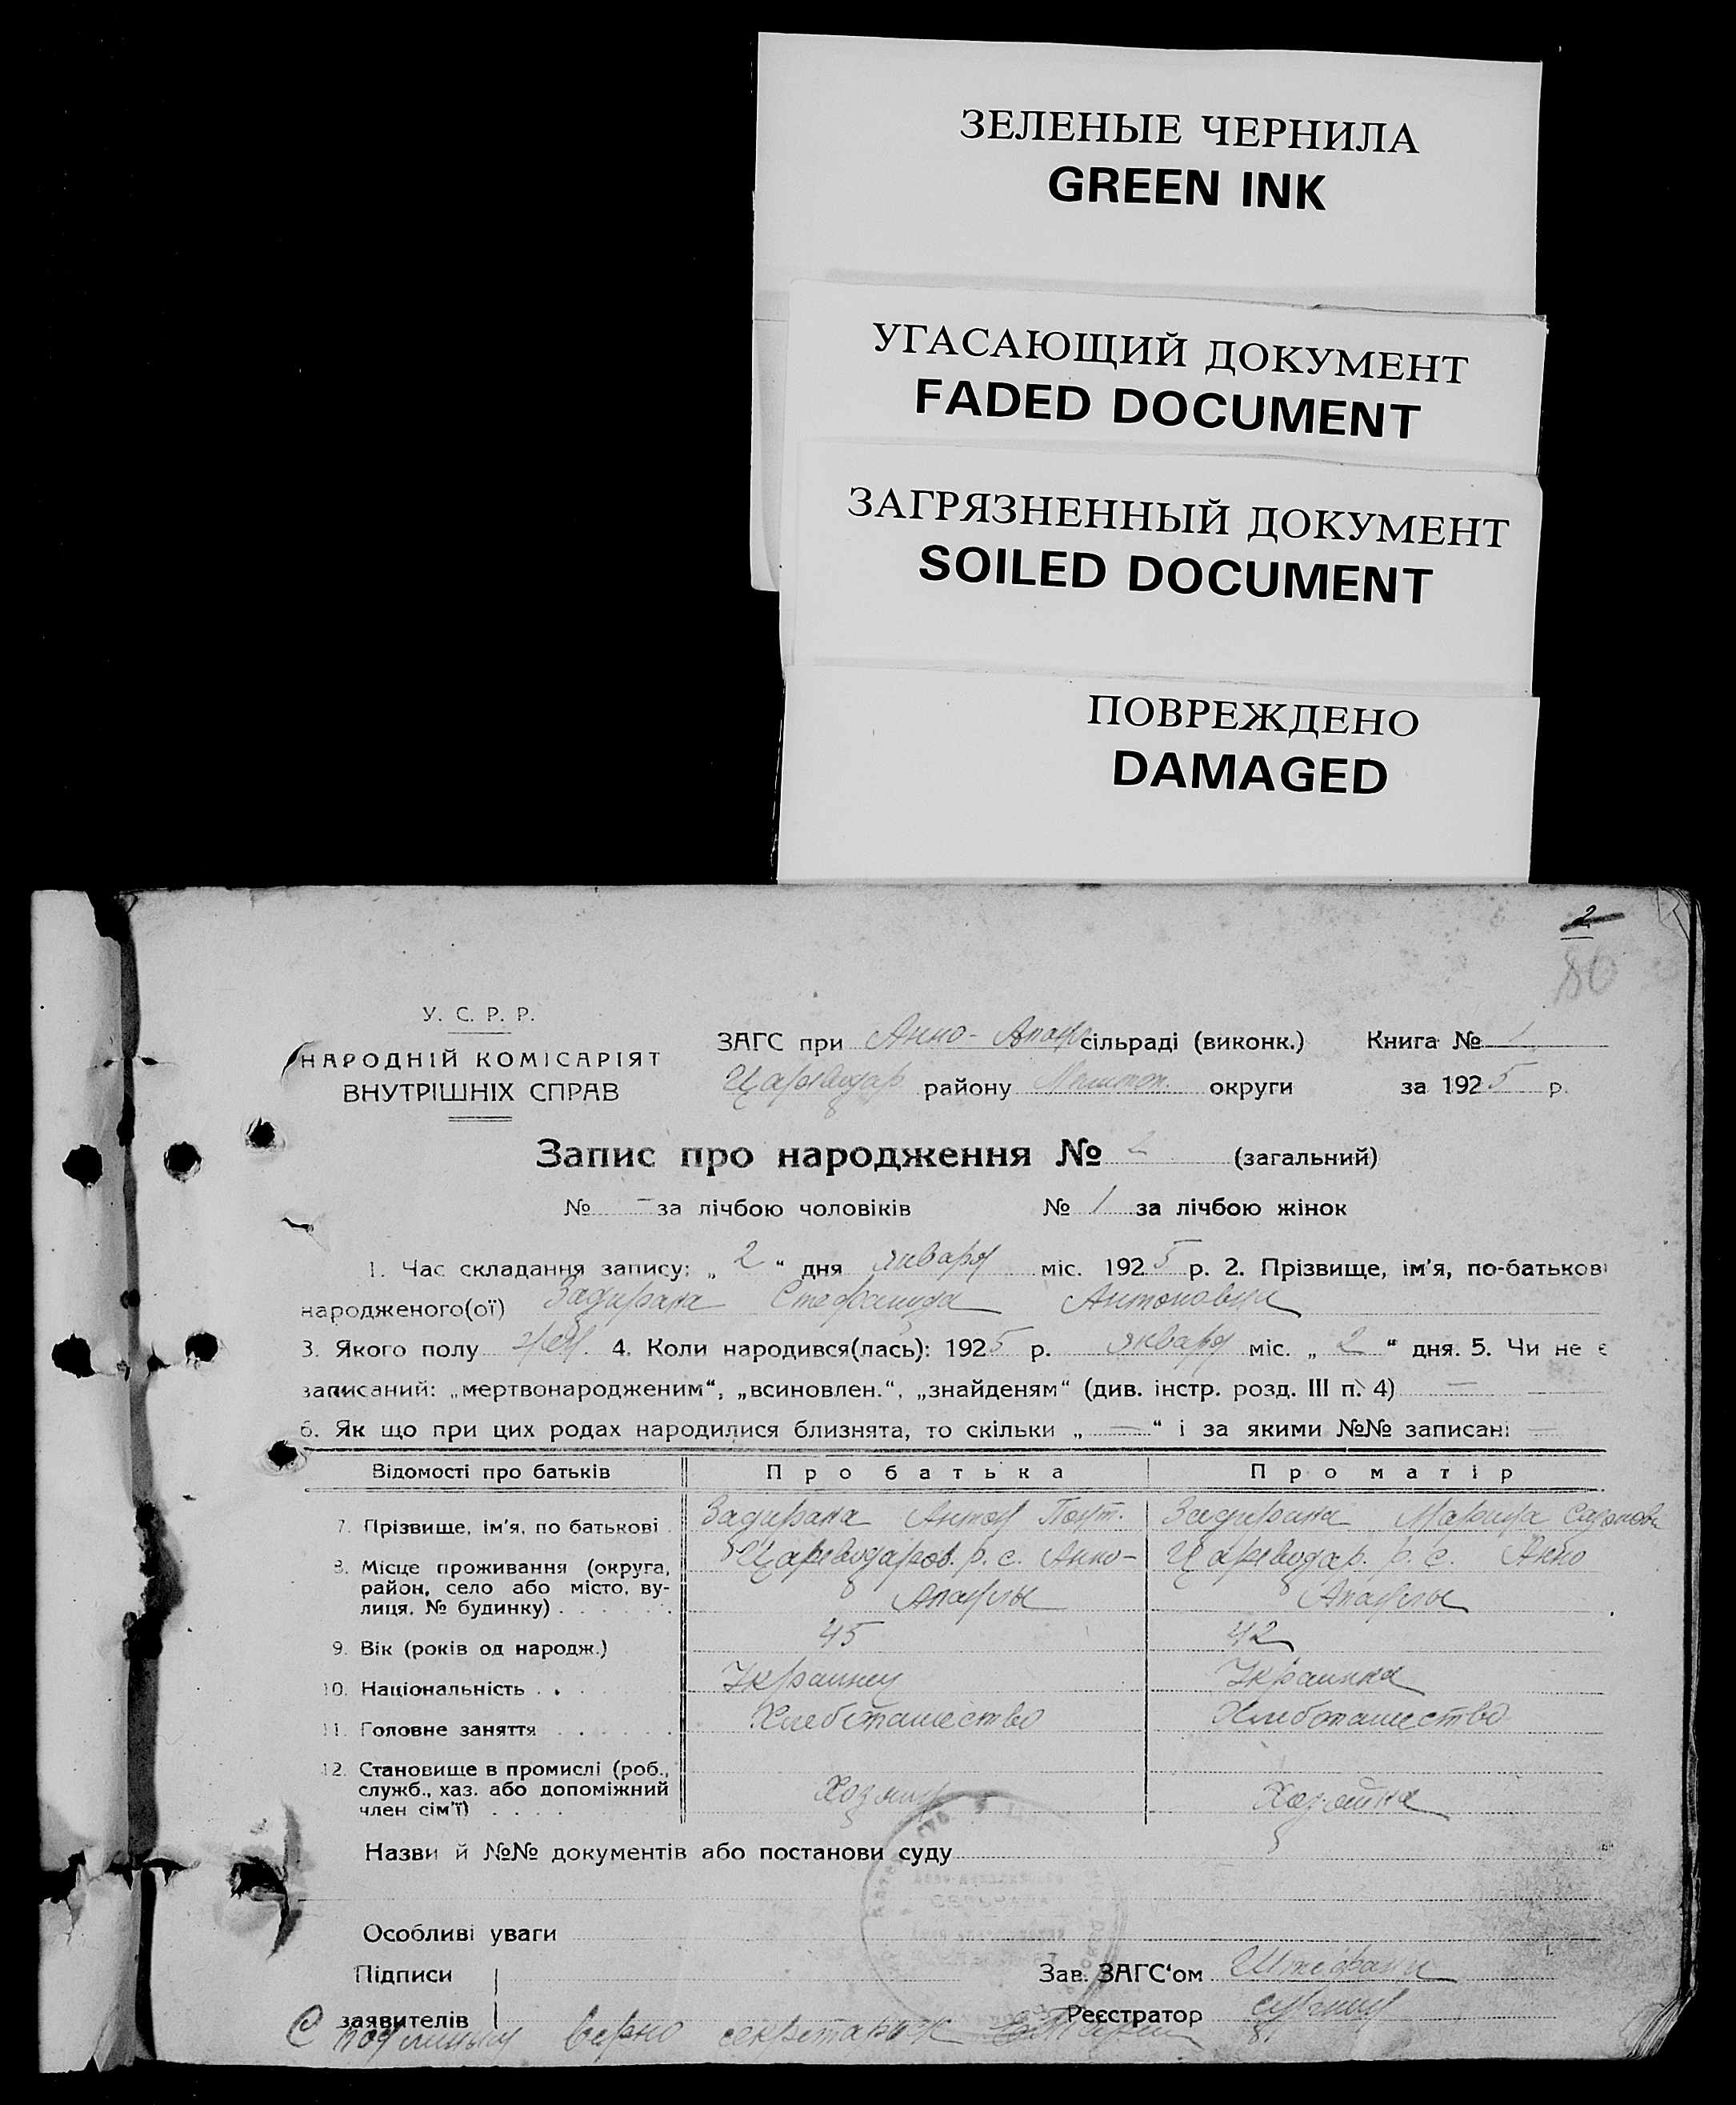 ЗЕЛЕНЫЕ ЧЕРНИЛА
GREEN INK
УГАСАЮЩИЙ ДОКУМЕНТ
FADED DOCUMENT
ЗАГРЯЗНЕННЫЙ ДОКУМЕНТ
SOILED DOCUMENT
ПОВРЕЖДЕНО
DAMAGED
2
80
У. С. Р. Р.
НАРОДНІЙ КОМІСАРІЯТ
ВНУТРІШНІХ СПРАВ
ЗАГС при Анно- сільраді (виконк.) Книга № 1
району округи за 1925 р.
Запис про народження № 2 (загальний)
№ — за лічбою чоловіків № 1 за лічбою жінок
1. Час складання запису: „ 2 “ дня января міс. 1925 р. 2. Прізвище, ім'я, по-батькові
народженого(ої) Задирака Стефанида Антоновна
3. Якого полу жен. 4. Коли народився(лась): 1925 р. января міс. „ 2 “ дня. 5. Чи не є
записаний: „мертвонародженим“, „всиновлен.“, „знайденям“ (див. інстр. розд. III п. 4) —
6. Як що при цих родах народилися близнята, то скільки „ — “ і за якими №№ записані —
Відомості про батьків Про батька Про матір
7. Прізвище, ім'я, по батькові Задирака Антон Задирака Марина
8. Місце проживання (округа, район, село або місто, вулиця, № будинку) р. с. Анно- р. с. Анно
9. Вік (років од народж.) 45 42
10. Національність Украинец Украинка
11. Головне заняття Хлебопашество Хлебопашество
12. Становище в промислі (роб., служб., хаз. або допоміжний член сім'ї) Хозяин Хозяйка
Назви й №№ документів або постанови суду
Особливі уваги
Підписи
заявителів
Зав. ЗАГС'ом
Реєстратор
С подлинным верно секретарь